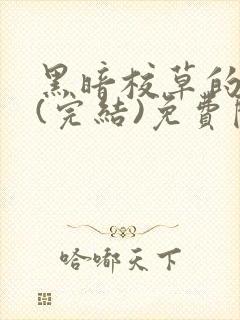 黑暗校草的
(完結)免費
哈嘟天下